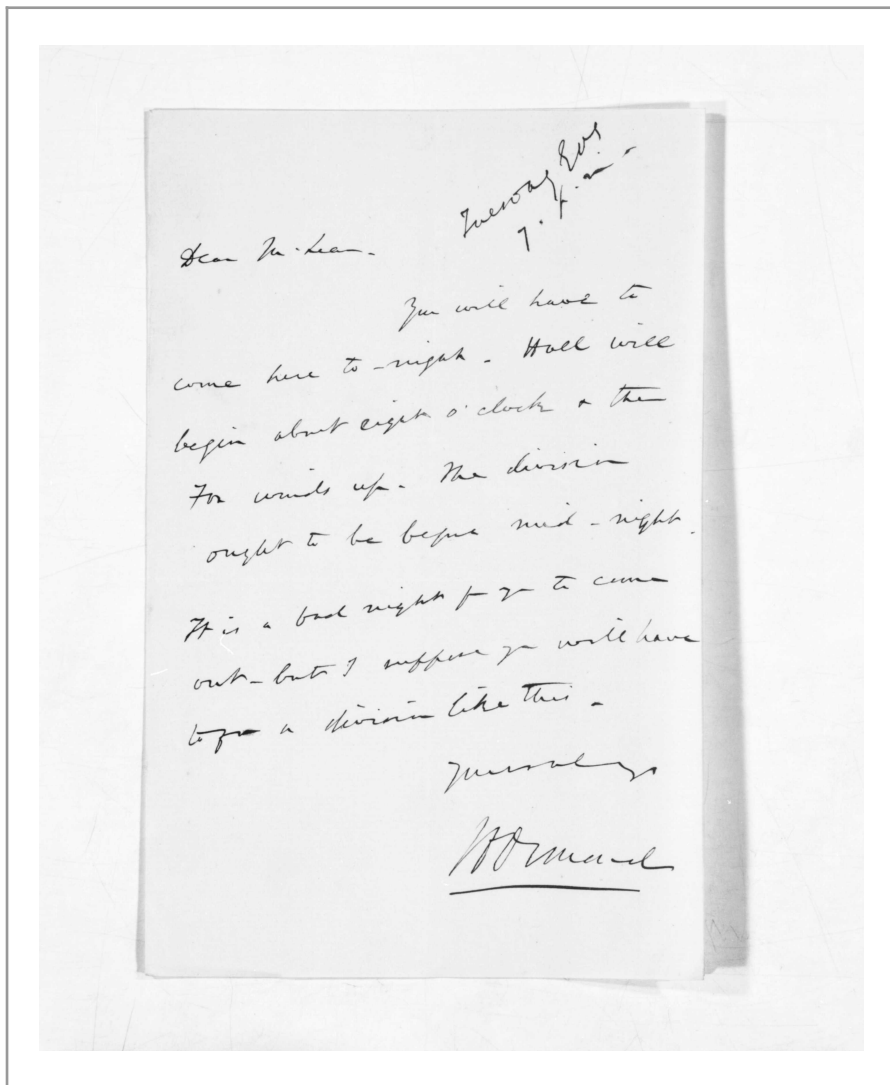 Tuesday Evg
7. p.m.
Dear McLean.
You will have to
come here to-night. Hall will
begin about eight o'clock & then
Fox winds up. The division
ought to be before mid-night.
It is a bad night for you to come
out - but I suppose you will have
to for a division like this.
Yours always
JD Ormond